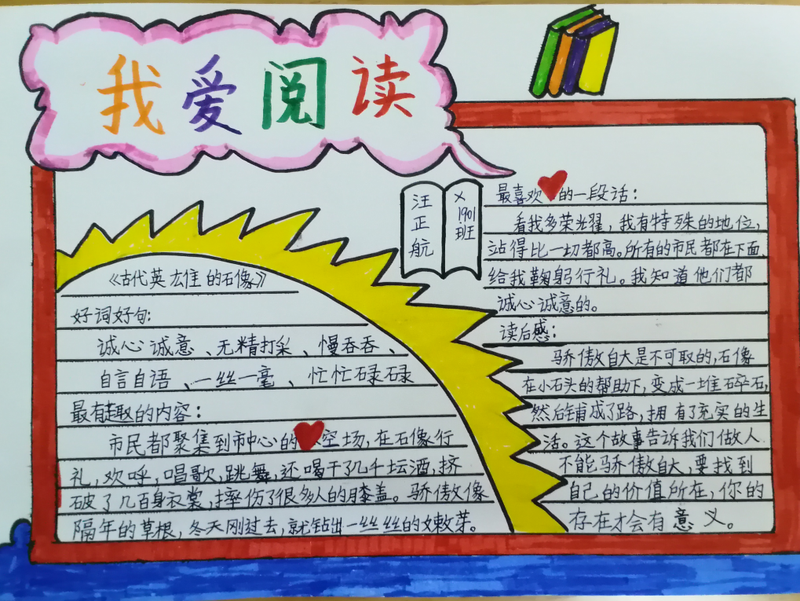 我爱阅读
汪正航
X1901班
《古代英雄的石像》
好词好句:
诚心诚意、无精打采、慢吞吞、
自言自语、一丝一毫、忙忙碌碌
最有趣的内容:
市民都聚集到市中心的空场,在石像行
礼,欢呼,唱歌,跳舞,还喝干了几千坛酒,挤
破了几百身衣裳,摔伤了很多人的膝盖。骄傲像
隔年的草根,冬天刚过去,就钻出一丝丝的嫩芽。
最喜欢的一段话:
看我多荣光耀,我有特殊的地位,
站得比一切都高。所有的市民都在下面
给我鞠躬行礼。我知道他们都
诚心诚意的。
读后感:
骄傲自大是不可取的,石像
在小石头的帮助下,变成一堆碎石,
然后铺成了路,拥有了充实的生
活。这个故事告诉我们做人
不能骄傲自大,要找到
自己的价值所在,你的
存在才会有意义。